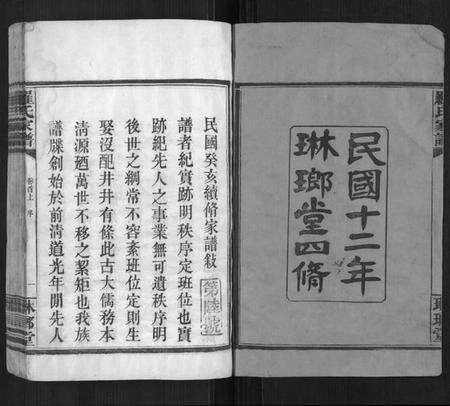 民國十二年
琳瑯堂四脩
琳瑯堂
民國癸亥續脩家譜敍
譜者紀實跡明秩序定班位也實
跡紀先人之事業無可遺秩序明
後世之綱常不容紊班位定則生
娶沒配井井有條此古大儒務本
清源廼萬世不移之絜矩也我族
譜牒創始於前清道光年間先人
羅氏家譜
卷首上 序
一
琳瑯堂